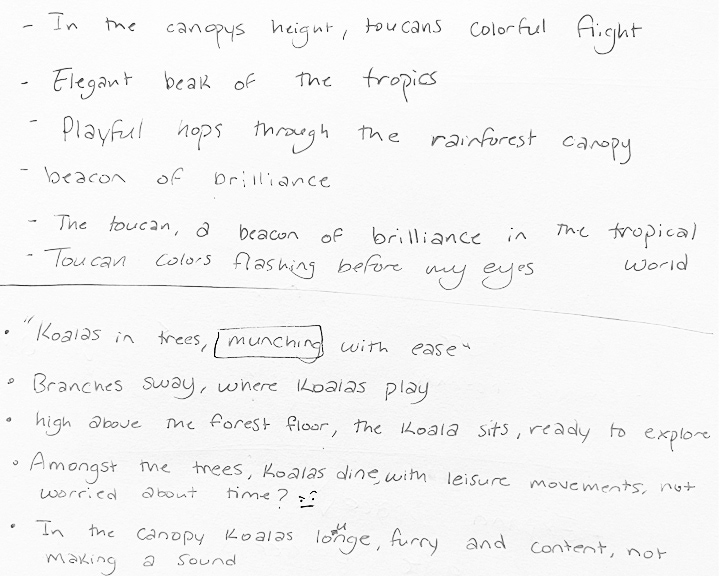 - In the canopys height, toucans colorful flight
- Elegant beak of the tropics
- Playful hops through the rainforest canopy
- beacon of brilliance
- The toucan, a beacon of brilliance in the tropical
world
- Toucan colors flashing before my eyes
• "Koalas in trees, munching with ease"
• Branches sway, where Koalas play
• high above the forest floor, the Koala sits, ready to explore
• Amongst the trees, Koalas dine, with leisure movements, not
worried about time?
• In the canopy Koalas lounge, furry and content, not
making a sound